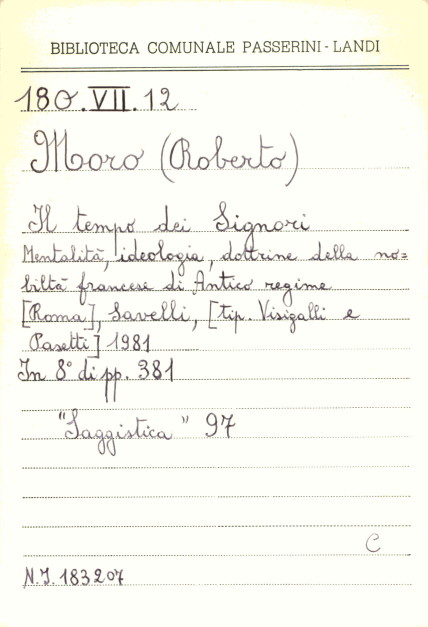 BIBLIOTECA COMUNALE PASSERINI - LANDI
180.VII.12
Moro (Roberto)
Il tempo dei Signori
Mentalità, ideologia, dottrine della no=
biltà francese di Antico regime
[Roma], Savelli, [tip. Visigalli e
Pasetti] 1981
In 8° di pp. 381
"Saggistica" 97
C
N.I. 183207